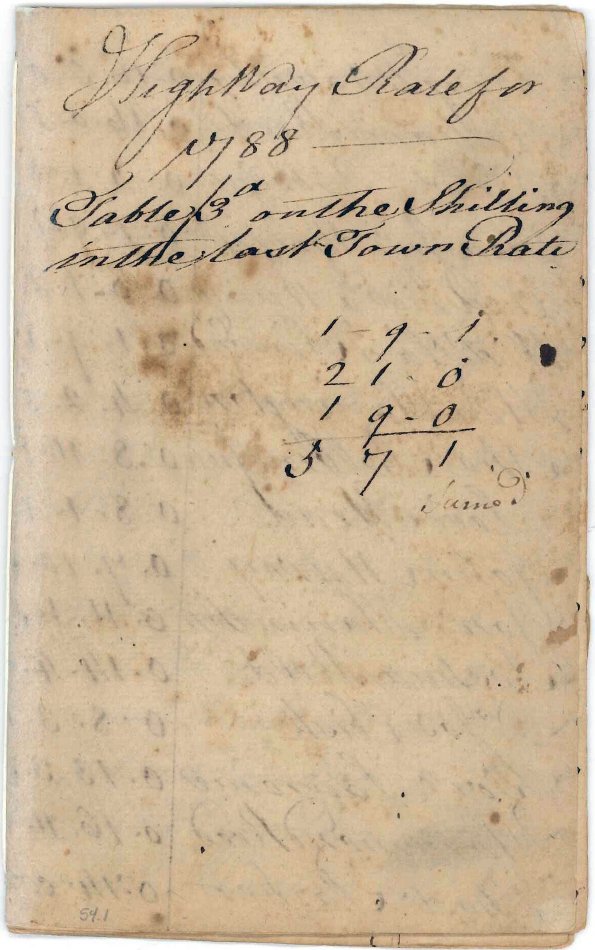 HighWay Rate for
1788
Table 3d on the Shilling
in the last Town Rate
1 - 9 - 1
2 1 0
1 9 - 0
5 7 1
54.1